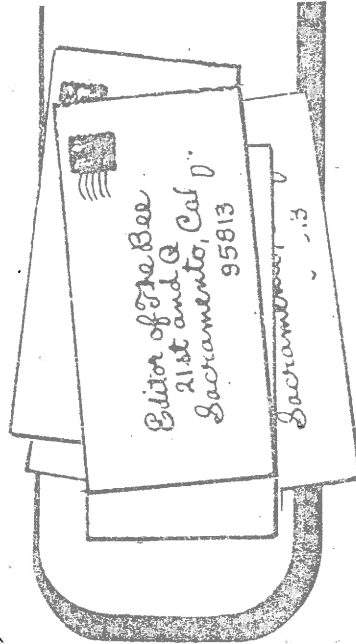 Editor of The Bee
21st and Q
Sacramento, Cal
95813
Sacramento,
13